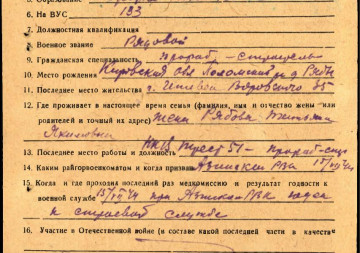 6. На ВУС 133
7. Должностная квалификация
8. Военное звание Рядовой
9. Гражданская специальность прораб-строитель
10. Место рождения Кировская обл.
11. Последнее место жительства г. Ижевск 35
12. Где проживает в настоящее время семья (фамилия, имя и отчество жены или
родителей и точный их адрес) жена Рябова Татьяна
Яковлевна
13. Последнее место работы и должность трест 51 - прораб-стр.
14. Каким райгорвоенкоматом и когда призван РВК
15. Когда и где проходил последний раз медкомиссию и результат годности к
военной службе при РВК годен
к строевой службе
16. Участие в Отечественной войне (в составе какой последней части в качестве